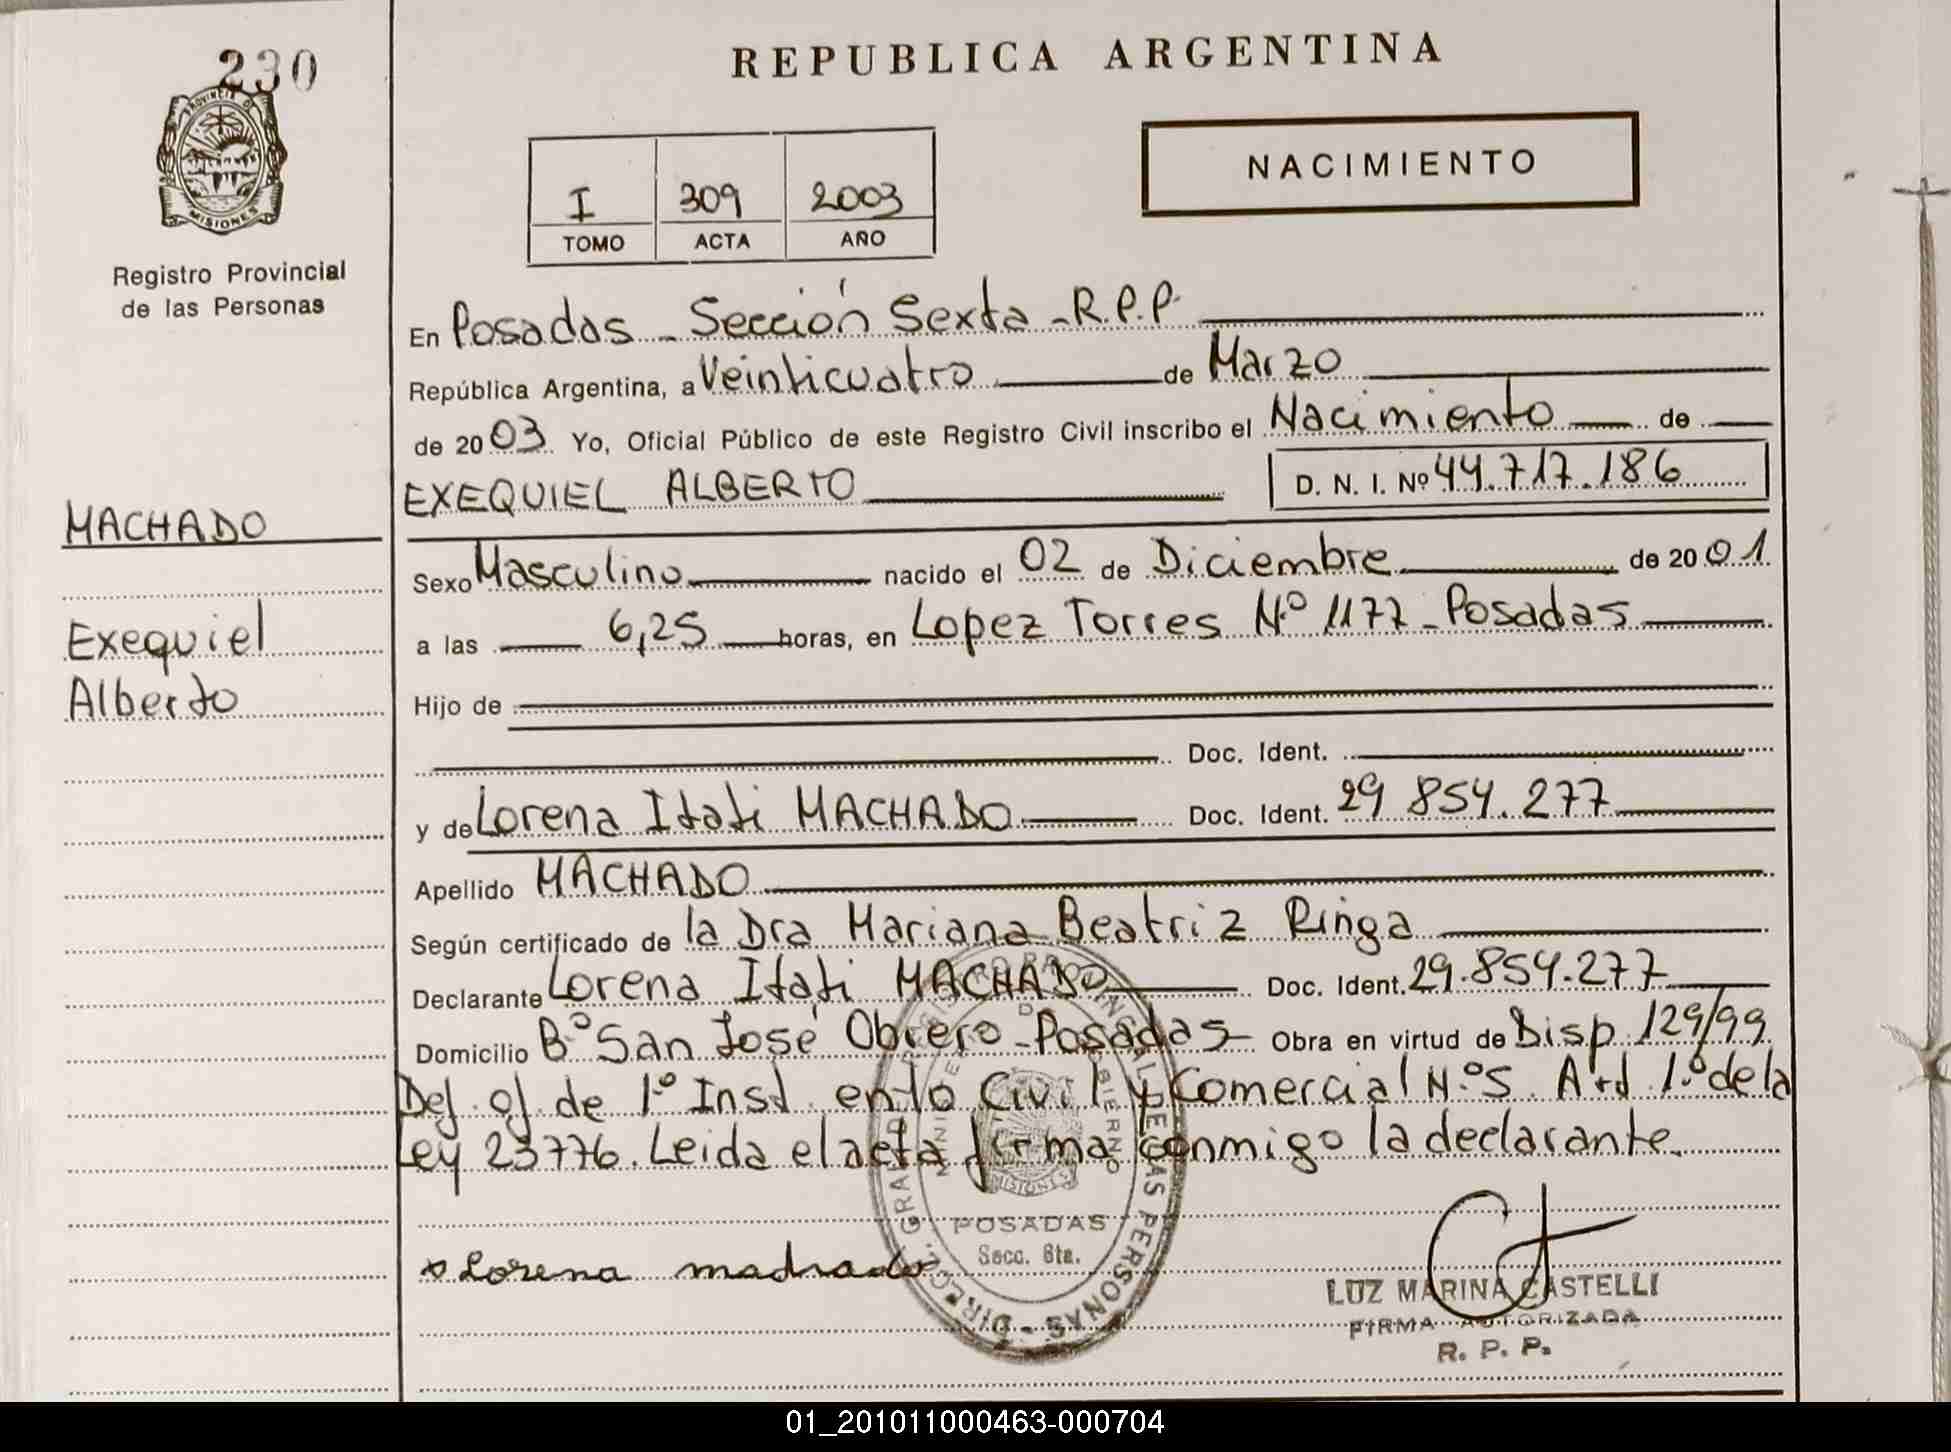 230
PROVINCIA DE
MISIONES
Registro Provincial
de las Personas
MACHADO
Exequiel
Alberto
REPUBLICA ARGENTINA
I 309 2003
TOMO ACTA AÑO
NACIMIENTO
En Posadas - Sección Sexta - R.P.P.
República Argentina, a Veinticuatro de Marzo
de 2003 Yo, Oficial Público de este Registro Civil inscribo el Nacimiento de
EXEQUIEL ALBERTO D. N. I. Nº 44.717.186
Sexo Masculino nacido el 02 de Diciembre de 2001
a las 6,25 horas, en Lopez Torres Nº 1177 - Posadas
Hijo de
Doc. Ident.
y de Lorena Itati MACHADO Doc. Ident. 29 854.277
Apellido MACHADO
Según certificado de la Dra Mariana Beatriz Ringa
Declarante Lorena Itati MACHADO Doc. Ident. 29.854.277
Domicilio Bº San José Obrero - Posadas Obra en virtud de Disp. 129/99
Def. of. de 1º Inst. en lo Civil y Comercial N.º 5. Art 1.º de la
Ley 23776. Leida el acta firma conmigo la declarante.
POSADAS
Secc. 6ta.
Lorena machado
LUZ MARINA CASTELLI
FIRMA AUTORIZADA
R. P. P.
01_201011000463-000704